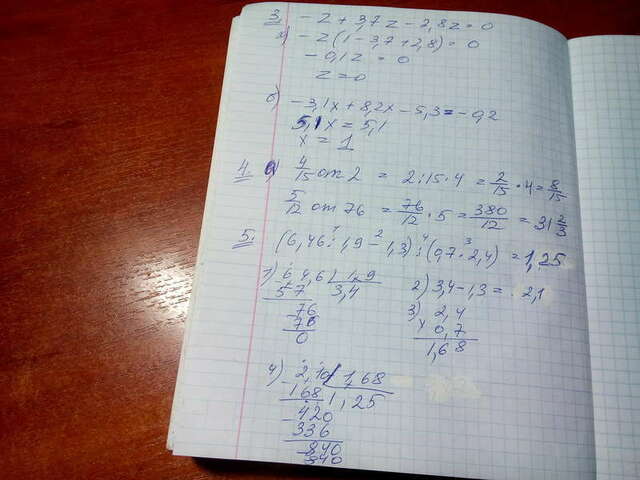 3. - z + 3,7z - 2,8z = 0
а) - z (1 - 3,7 + 2,8) = 0
- 0,1z = 0
z = 0
б) - 3,1x + 8,2x - 5,3 = - 0,2
5,1x = 5,1
x = 1
4. а) 4/15 от 2 = 2 : 15 · 4 = 2/15 · 4 = 8/15
5/12 от 76 = 76/12 · 5 = 380/12 = 31 2/3
5. (6,46 : 1,9 - 1,3) : (0,7 · 2,4) = 1,25
1) 64,6 | 1,9
57 3,4
76
76
0
2) 3,4 - 1,3 = 2,1
3) 2,4
× 0,7
1,68
4) 2,10 | 1,68
168 1,25
420
336
840
840